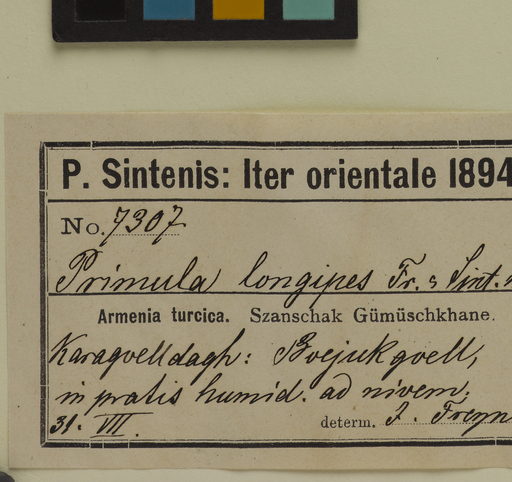 P. Sintenis: Iter orientale 1894
No. 7307
Primula longipes Fr. & Sint.
Armenia turcica. Szanschak Gümüschkhane.
Karagoelldagh: Boejukgoell,
in pratis humid. ad nivem.
31. VII. determ. J. Freyn